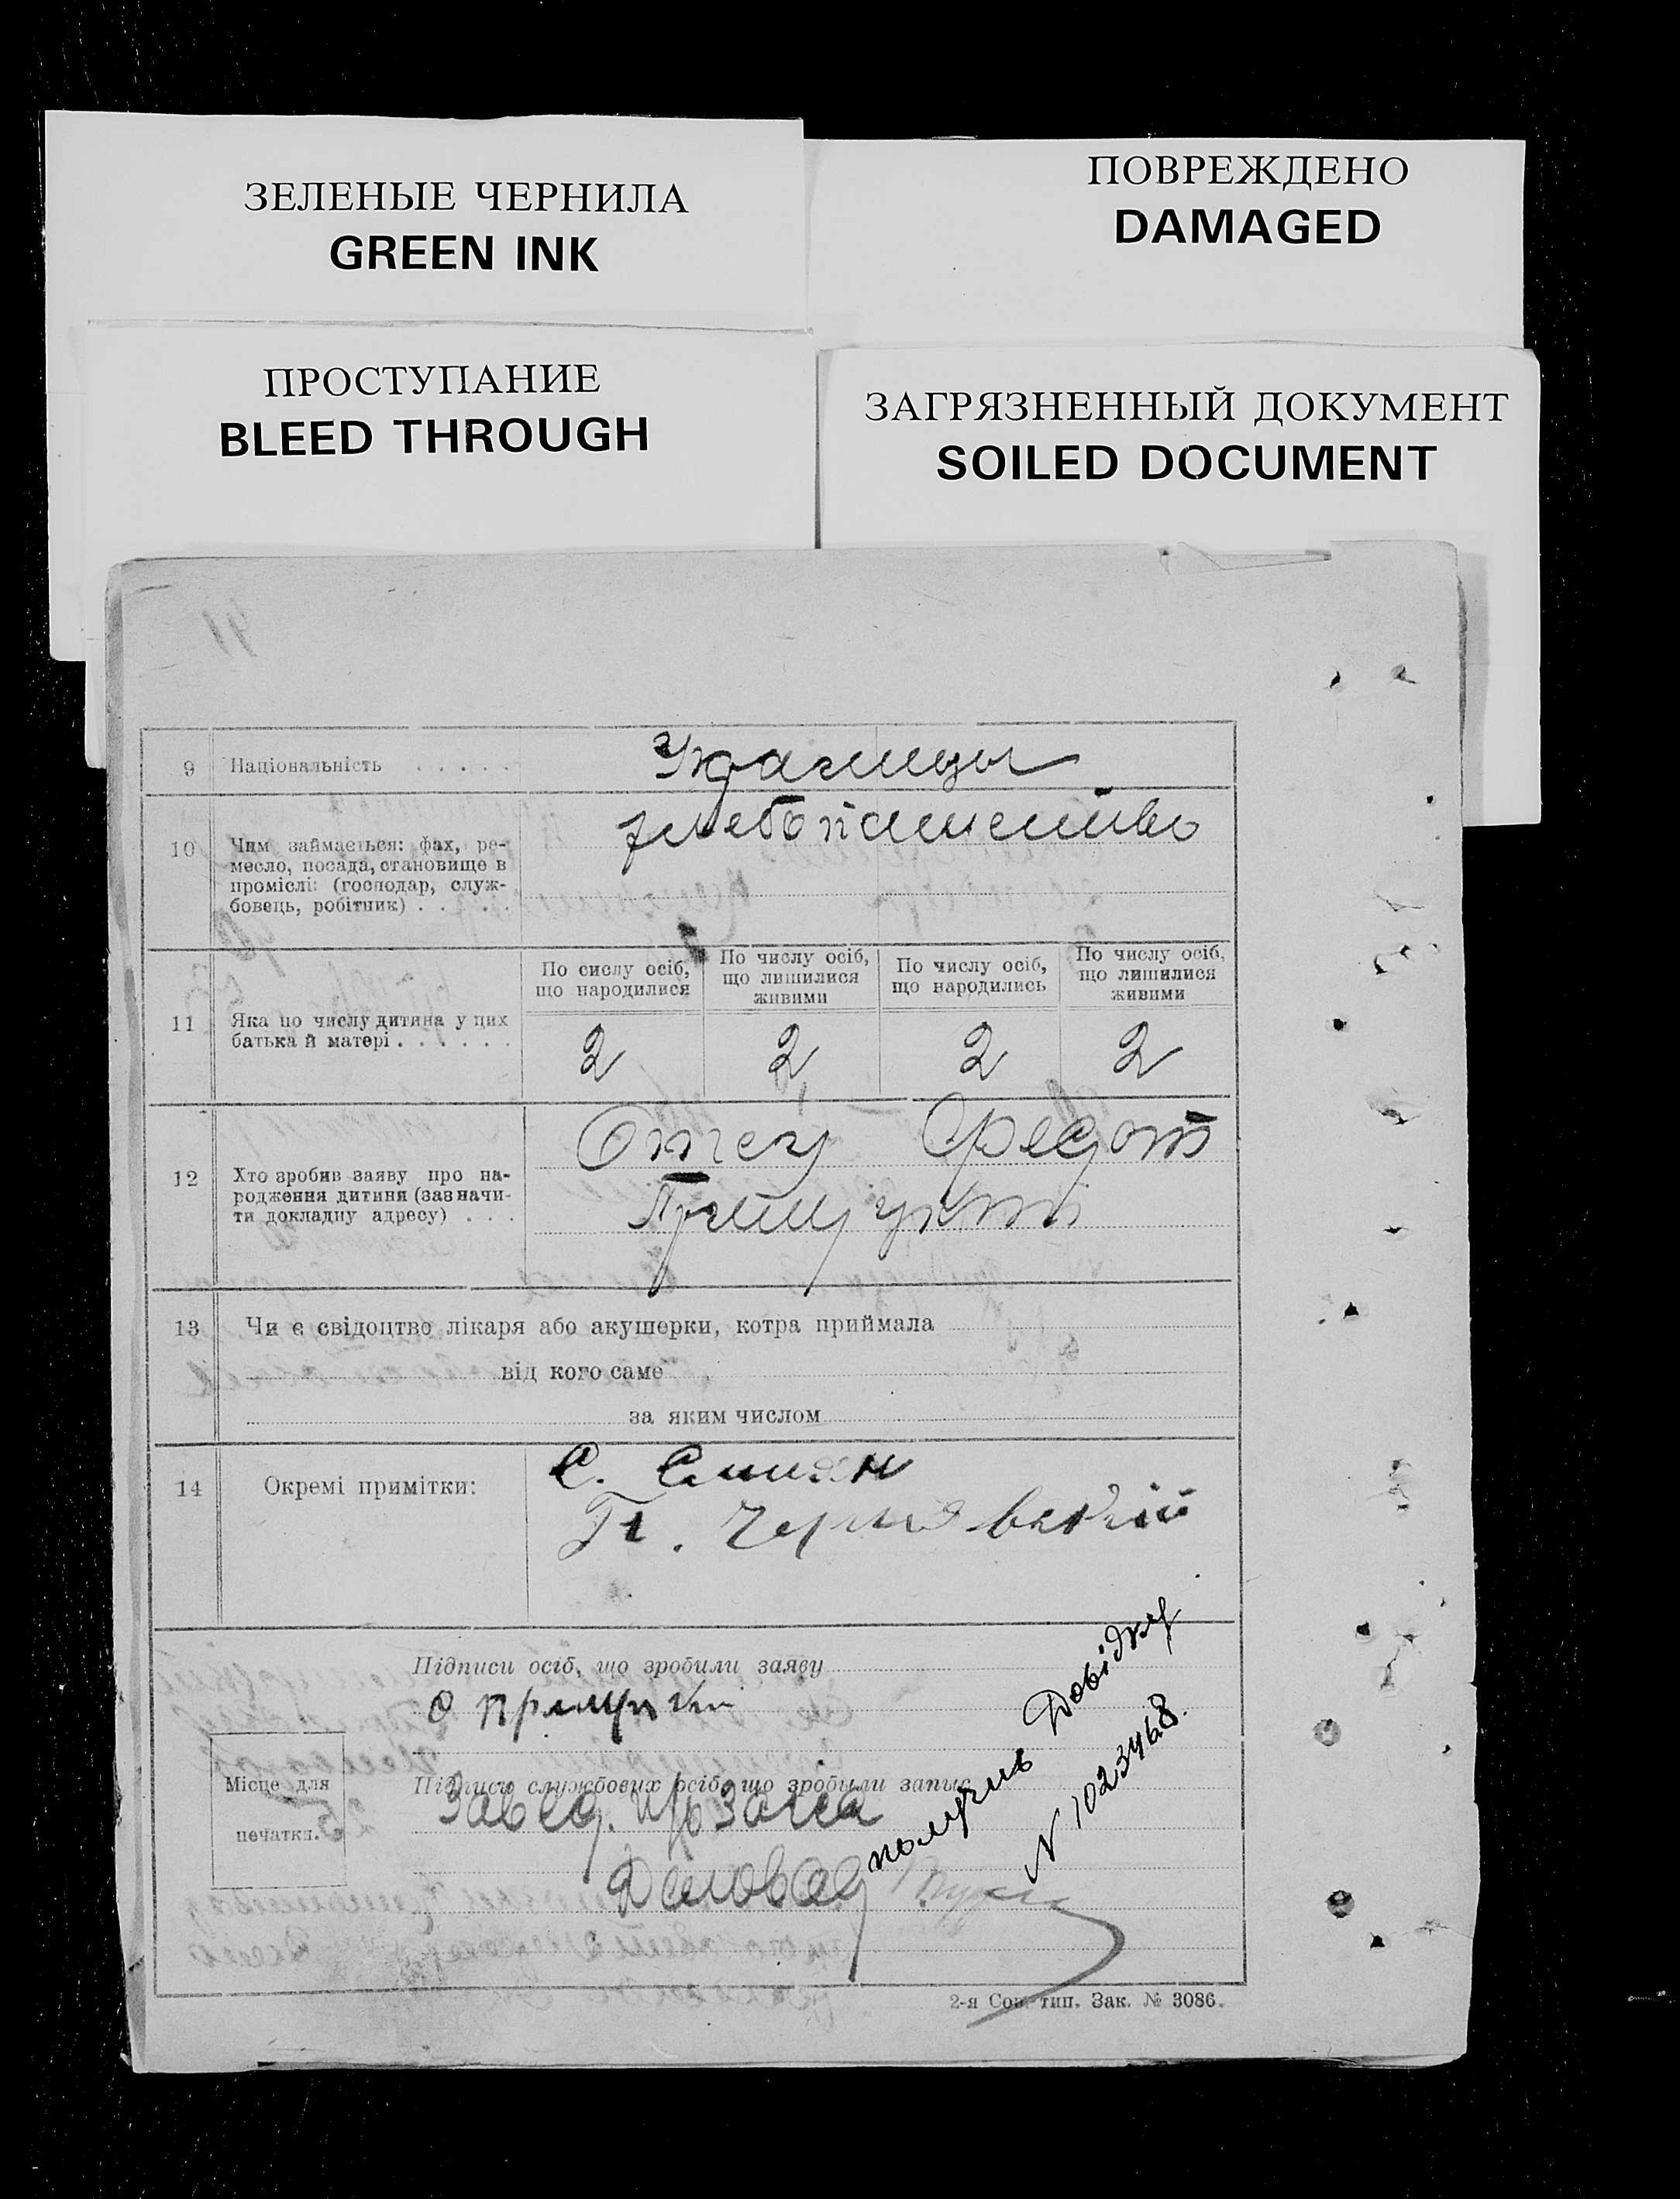 ЗЕЛЕНЫЕ ЧЕРНИЛА
GREEN INK
ПОВРЕЖДЕНО
DAMAGED
ПРОСТУПАНИЕ
BLEED THROUGH
ЗАГРЯЗНЕННЫЙ ДОКУМЕНТ
SOILED DOCUMENT
9 Національність . . . . .
10 Чим займається: фах, ре-
месло, посада, становище в
промислі: (господар, служ-
бовець, робітник) . . . .
хлебопашество
11 Яка по числу дитина у цих
батька й матері . . . . . .
По сислу осіб,
що народилися
По числу осіб,
що лишилися
живими
По числу осіб,
що народились
По числу осіб,
що лишилися
живими
2 2 2 2
12 Хто зробив заяву про на-
родження дитини (зазначи-
ти докладну адресу) . . .
Отец Федот
13 Чи є свідоцтво лікаря або акушерки, котра приймала
від кого саме
за яким числом
14 Окремі примітки:
С.
П.
Підписи осіб, що зробили заяву
Місце для
печатки.
Підписи службових осіб, що зробили запис
Завед.
Деловод
получив Довідку
N 1023468
2-я Сов. тип. Зак. № 3086.